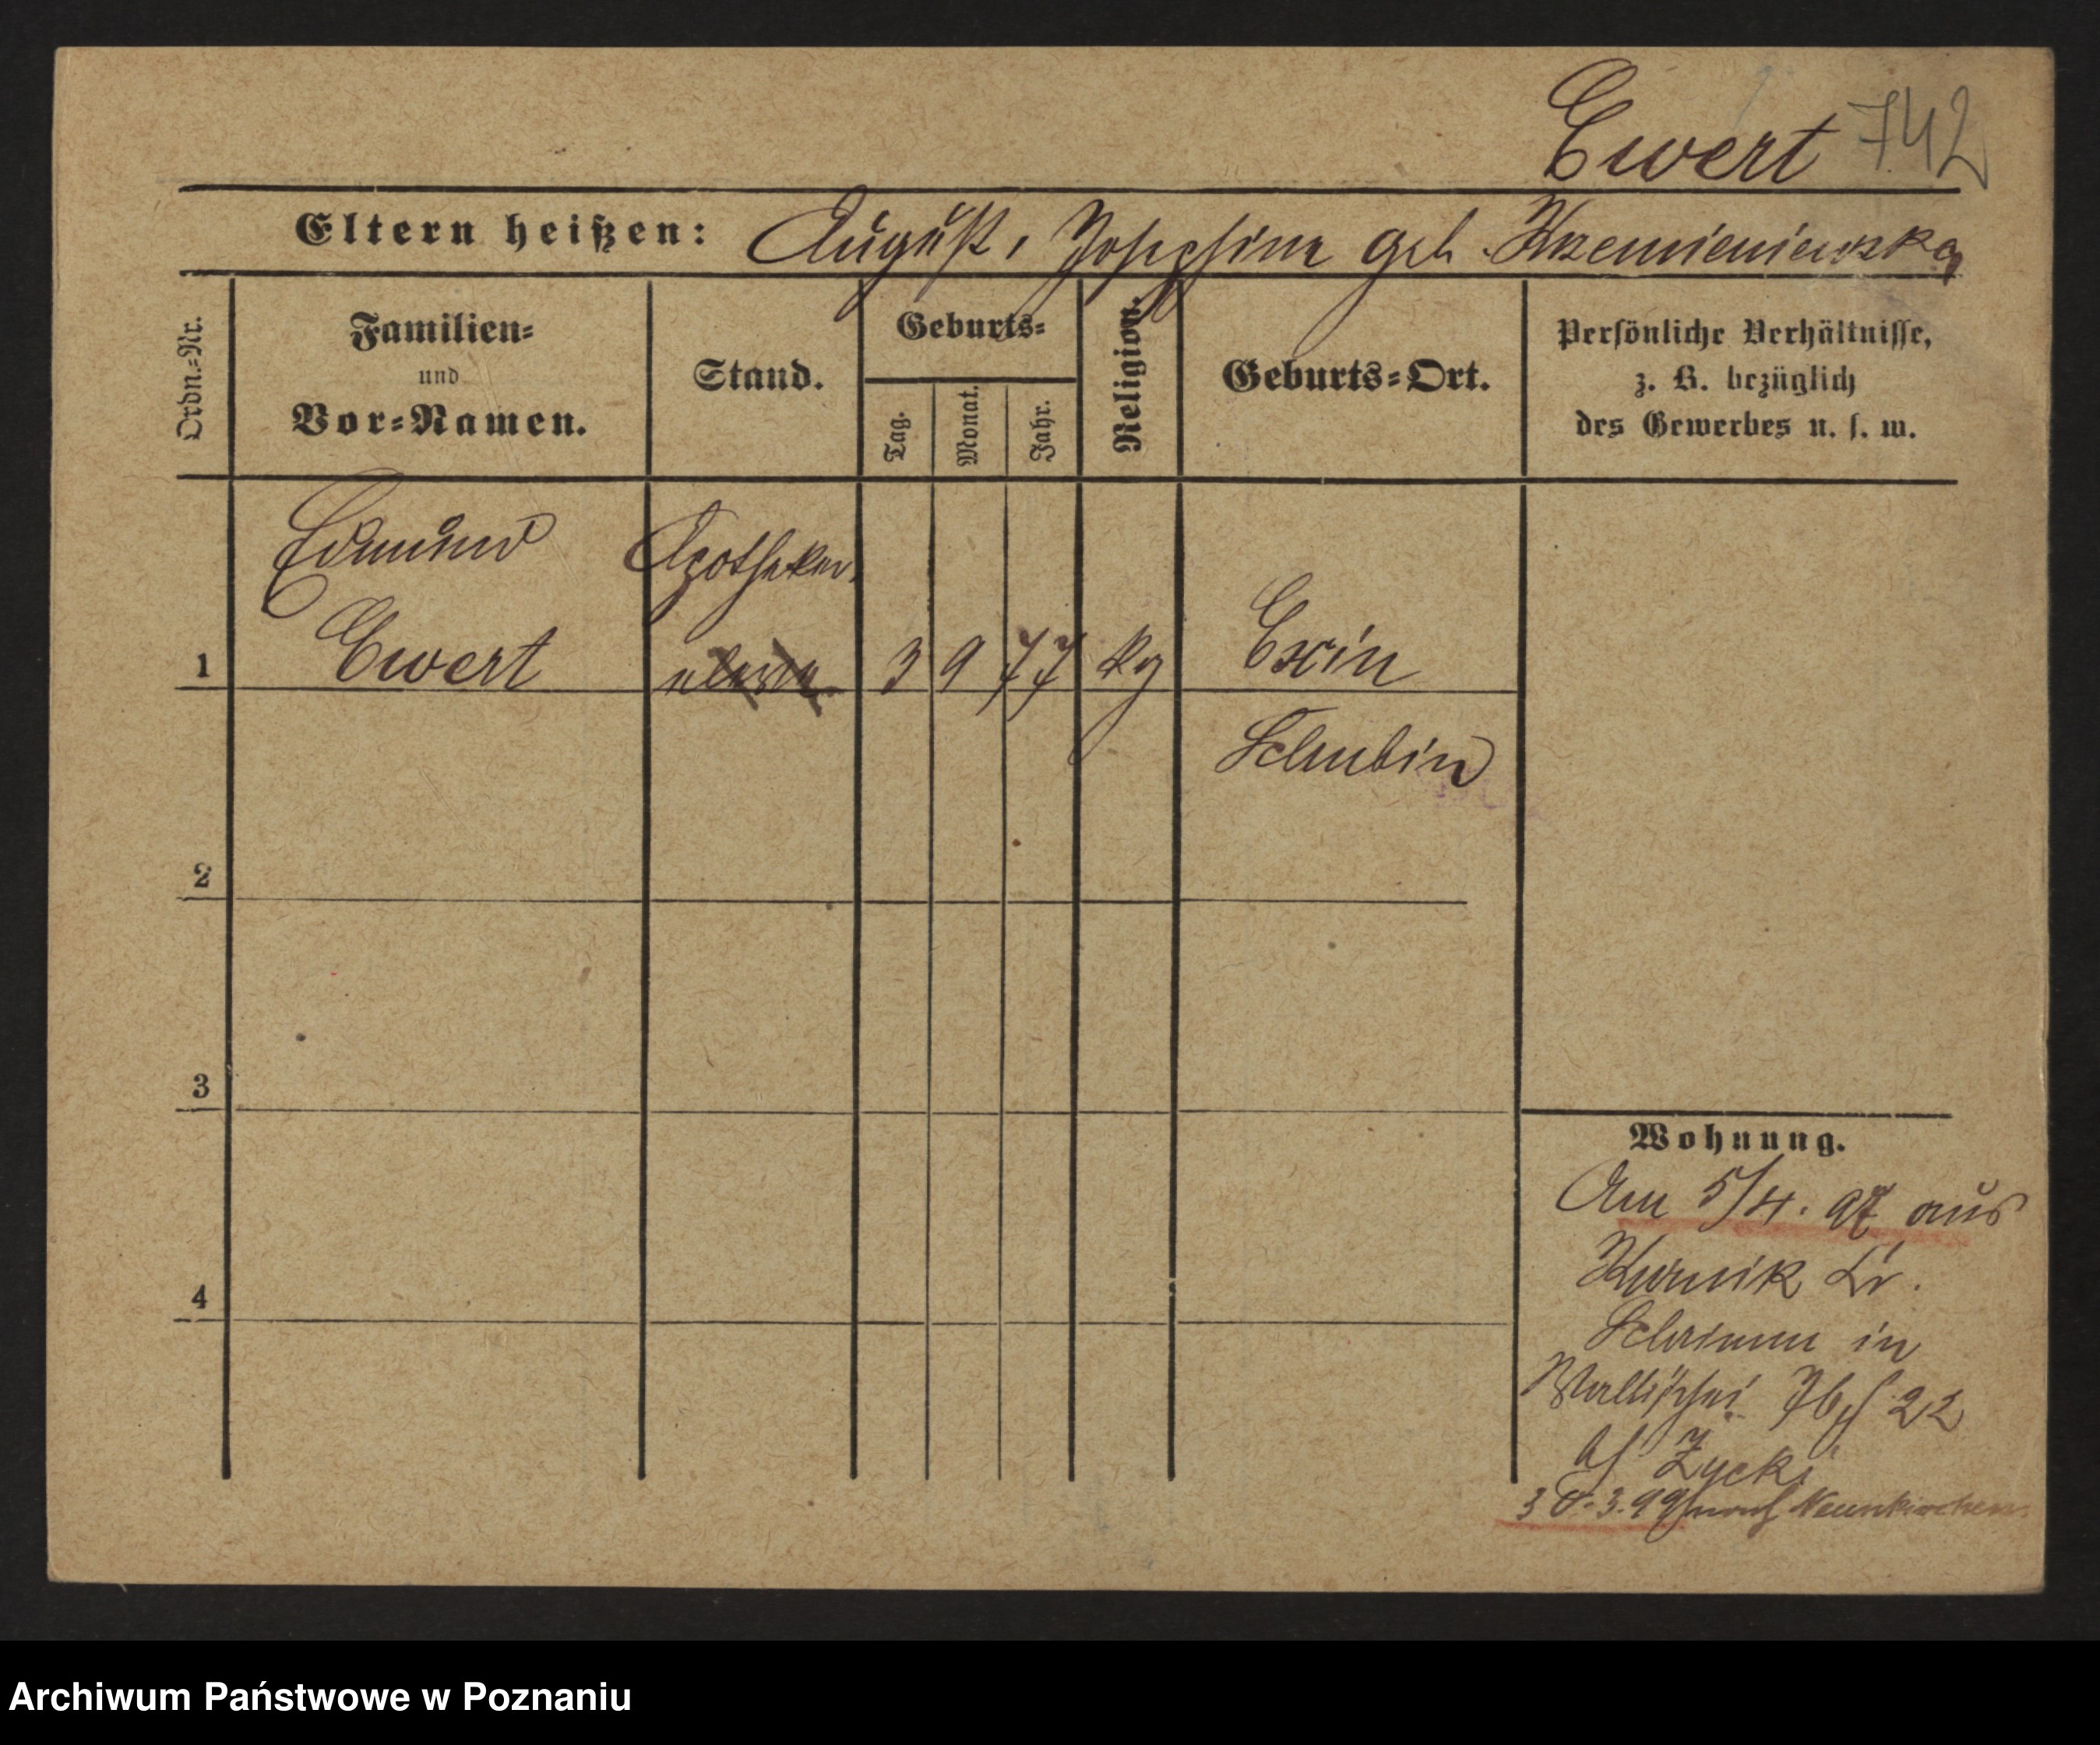 Ewert 742
Eltern heißen: August, Josephine geb. Krzemieniewska
Ordn.-Nr.
Familien-
und
Vor-Namen.
Stand.
Geburts-
Tag.
Monat.
Jahr.
Religion.
Geburts-Ort.
Persönliche Verhältnisse,
z. B. bezüglich
des Gewerbes u. s. w.
Edmund Apotheker
1 Ewert 3 9 77 kg Exin
Schubin
2
3
4
Wohnung.
Am 5/4. 97 aus
Kurnik Kr.
Schrimm in
Wallischei 22
bf Zycki
30.3.99 nach Neunkirchen
Archiwum Państwowe w Poznaniu